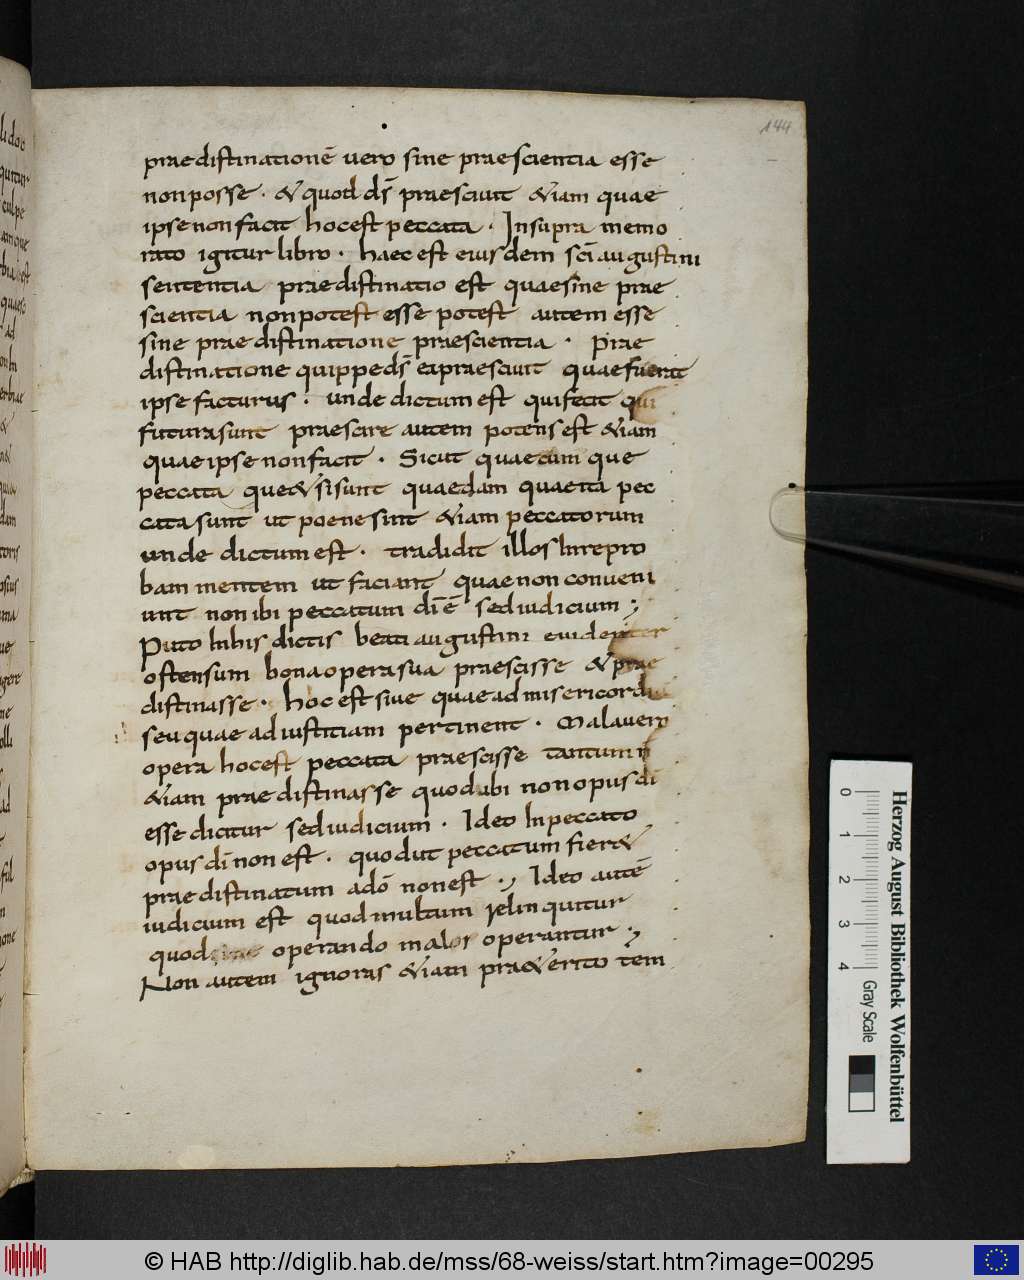 144
praedistinationē vero sine praescientia esse
non posse · & quod dš praesciuit &iam quae
ipse non facit hoc est peccata · Insupra memo
rato igitur libro · haec est eiusdem sc̄i augustini
sententia praedistinatio est quae sine prae
scientia non potest esse potest autem esse
sine praedistinatione praescientia · Prae
distinatione quippe dš ea praesciuit quae fuerat
ipse facturus · unde dictum est qui fecit qui
futura sunt praescire autem potens est &iam
quae ipse non facit · Sicut quaecumque
peccata que & si sunt quaedam quae ita pec
cata sunt ut poene sint &iam peccatorum
unde dictum est · tradidit illos In repro
bam mentem ut faciant quae non conueni
unt non ibi peccatum dī ē sed iudicium ;
Puto In his dictis beati augustini euidenter
ostensum bona opera sua praescisse & prae
distinasse · hoc est siue quae ad misericordi
seu quae ad iustitiam pertinent · Mala uero
opera hoc est peccata praescisse tantum n
&iam praedistinasse quod ubi non opus dī
esse dicitur sed iudicium · Ideo In peccato
opus dī non est · quod ut peccatum fier&
praedistinatum a dō non est ·; Ideo autē
iudicium est quod multum relinquitur
quod operando malor operantur ·;
Non autem ignoras &iam pra&erito tem
Herzog August Bibliothek Wolfenbüttel
0 1 2 3 4 Gray Scale
© HAB http://diglib.hab.de/mss/68-weiss/start.htm?image=00295